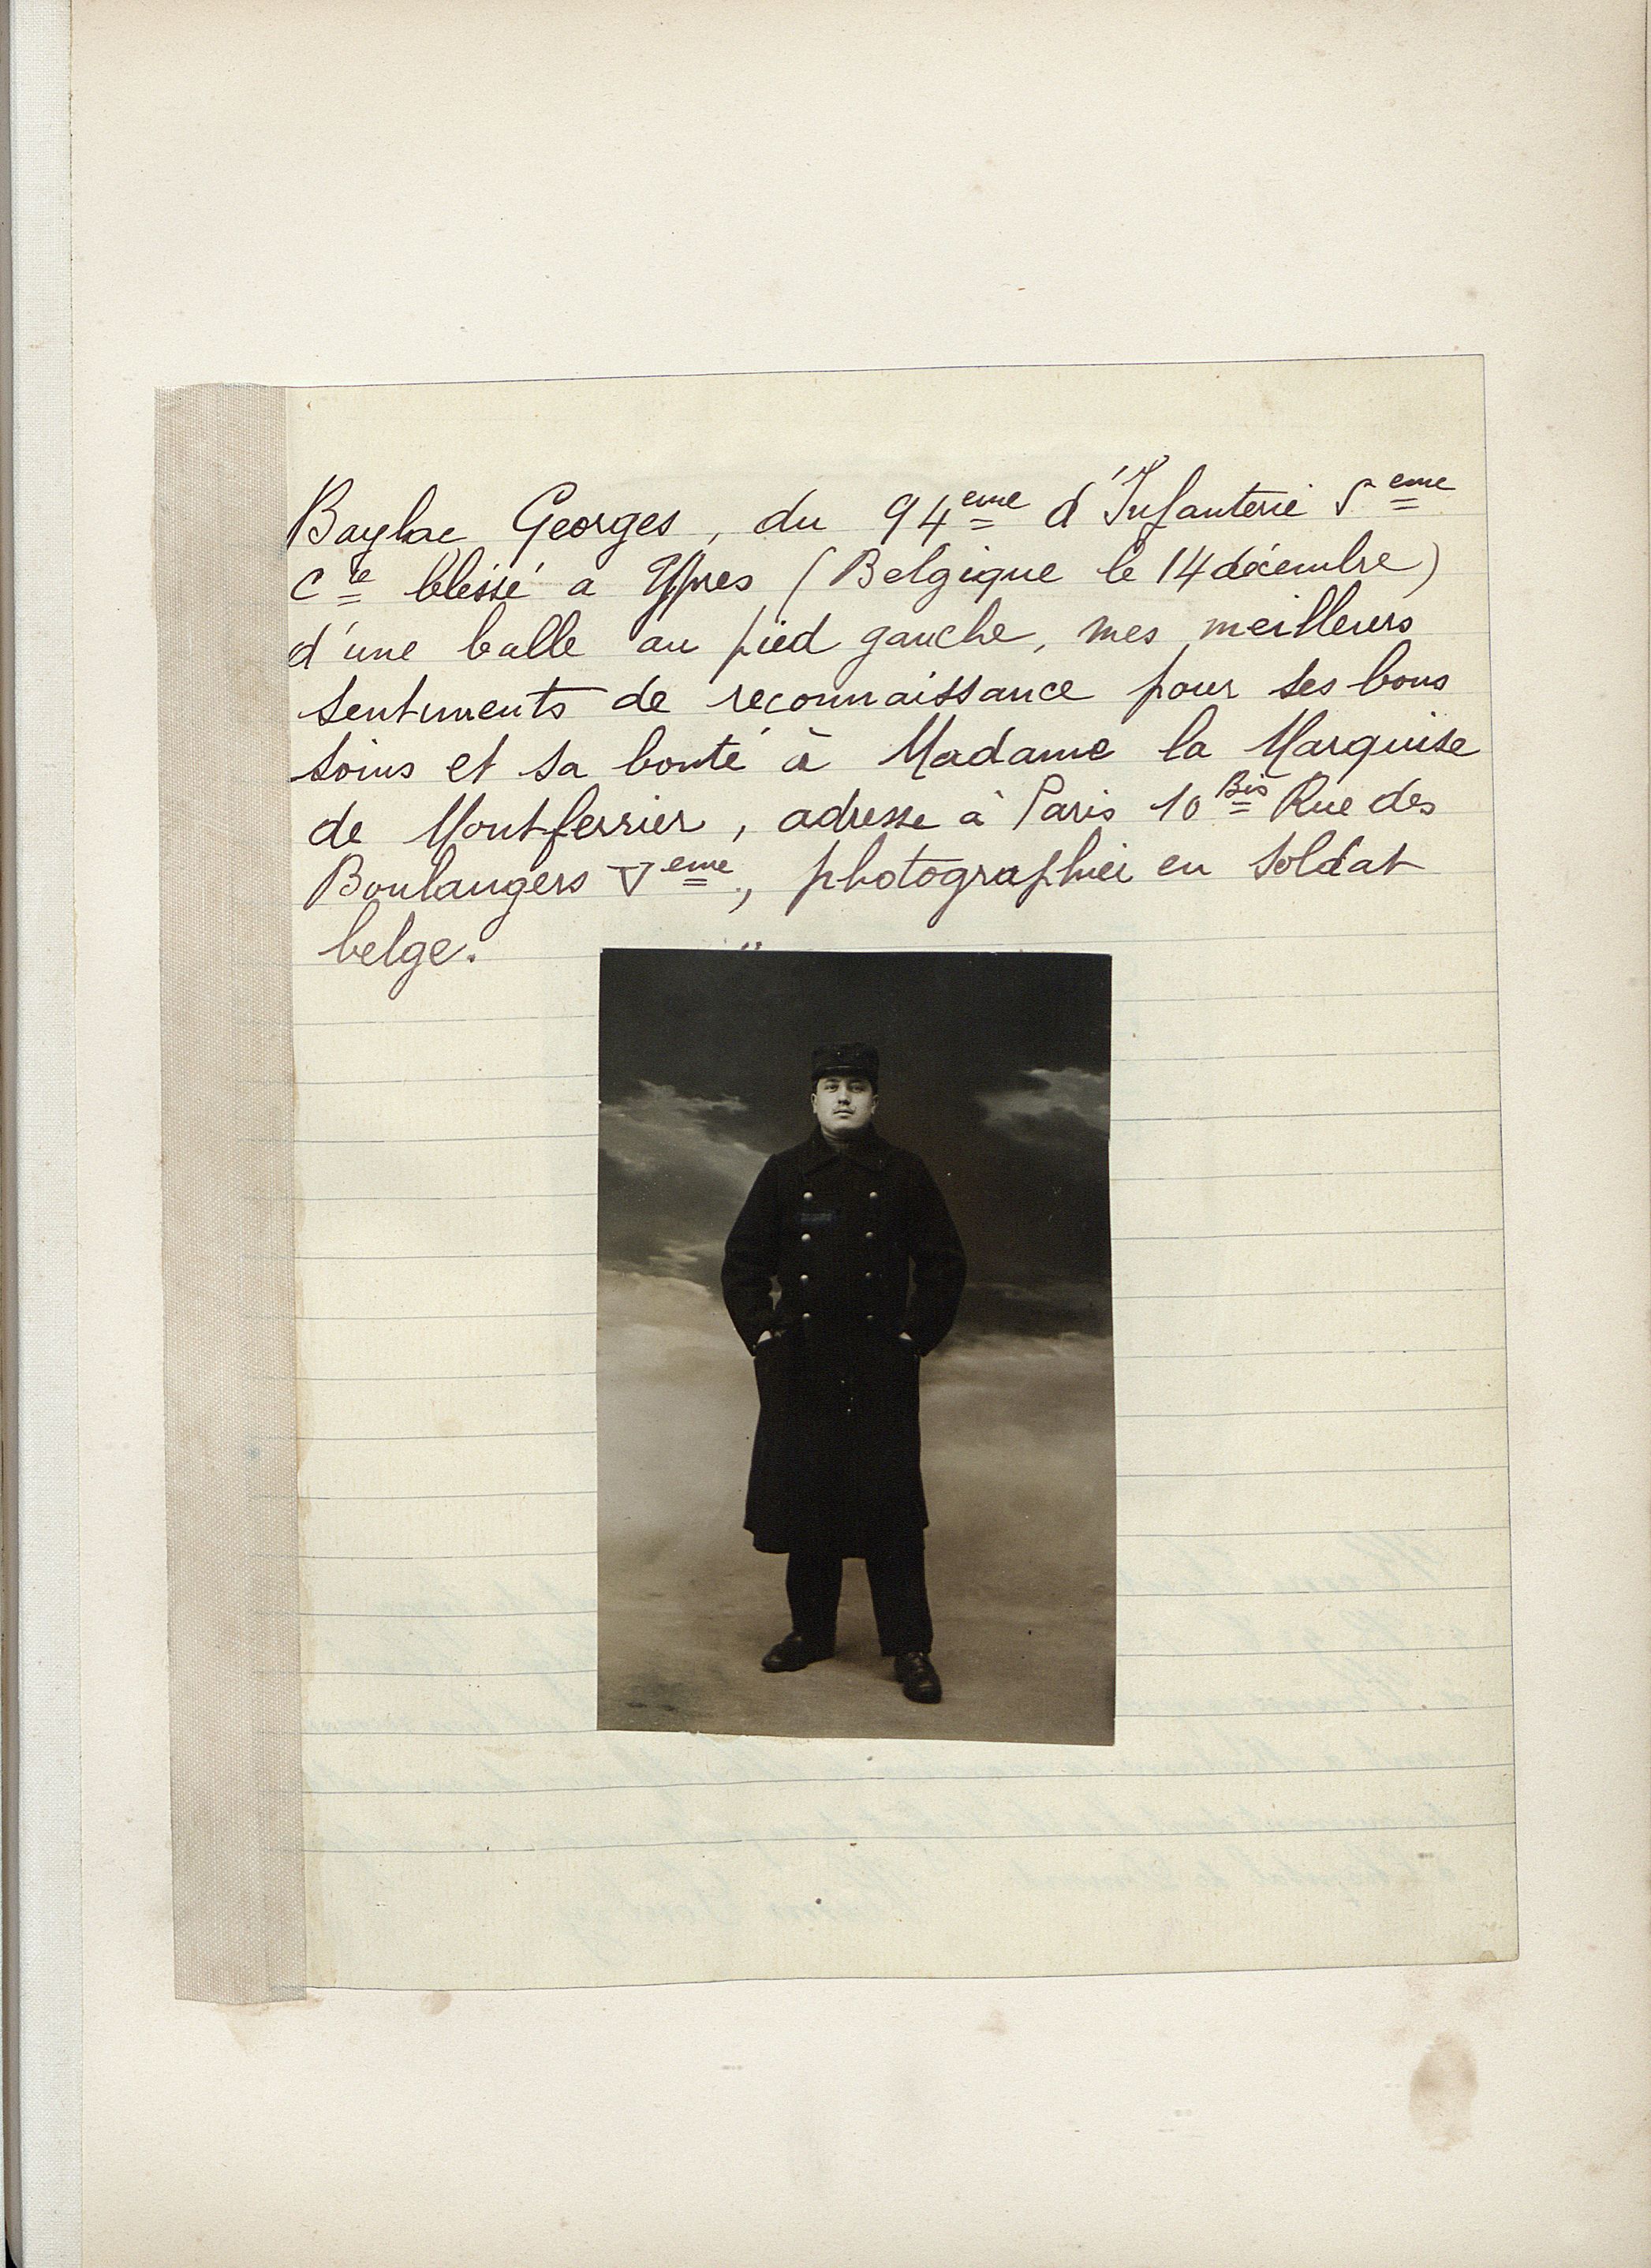 Baylac Georges, du 94eme d'Infanterie 5eme
Cie blessé a Ypres (Belgique le 14 décembre)
d'une balle au pied gauche, mes meilleurs
sentiments de reconnaissance pour ses bons
soins et sa bonté à Madame la Marquise
de Montferrier, adresse à Paris 10 Bis Rue des
Boulangers Veme, photographiée en soldat
belge.